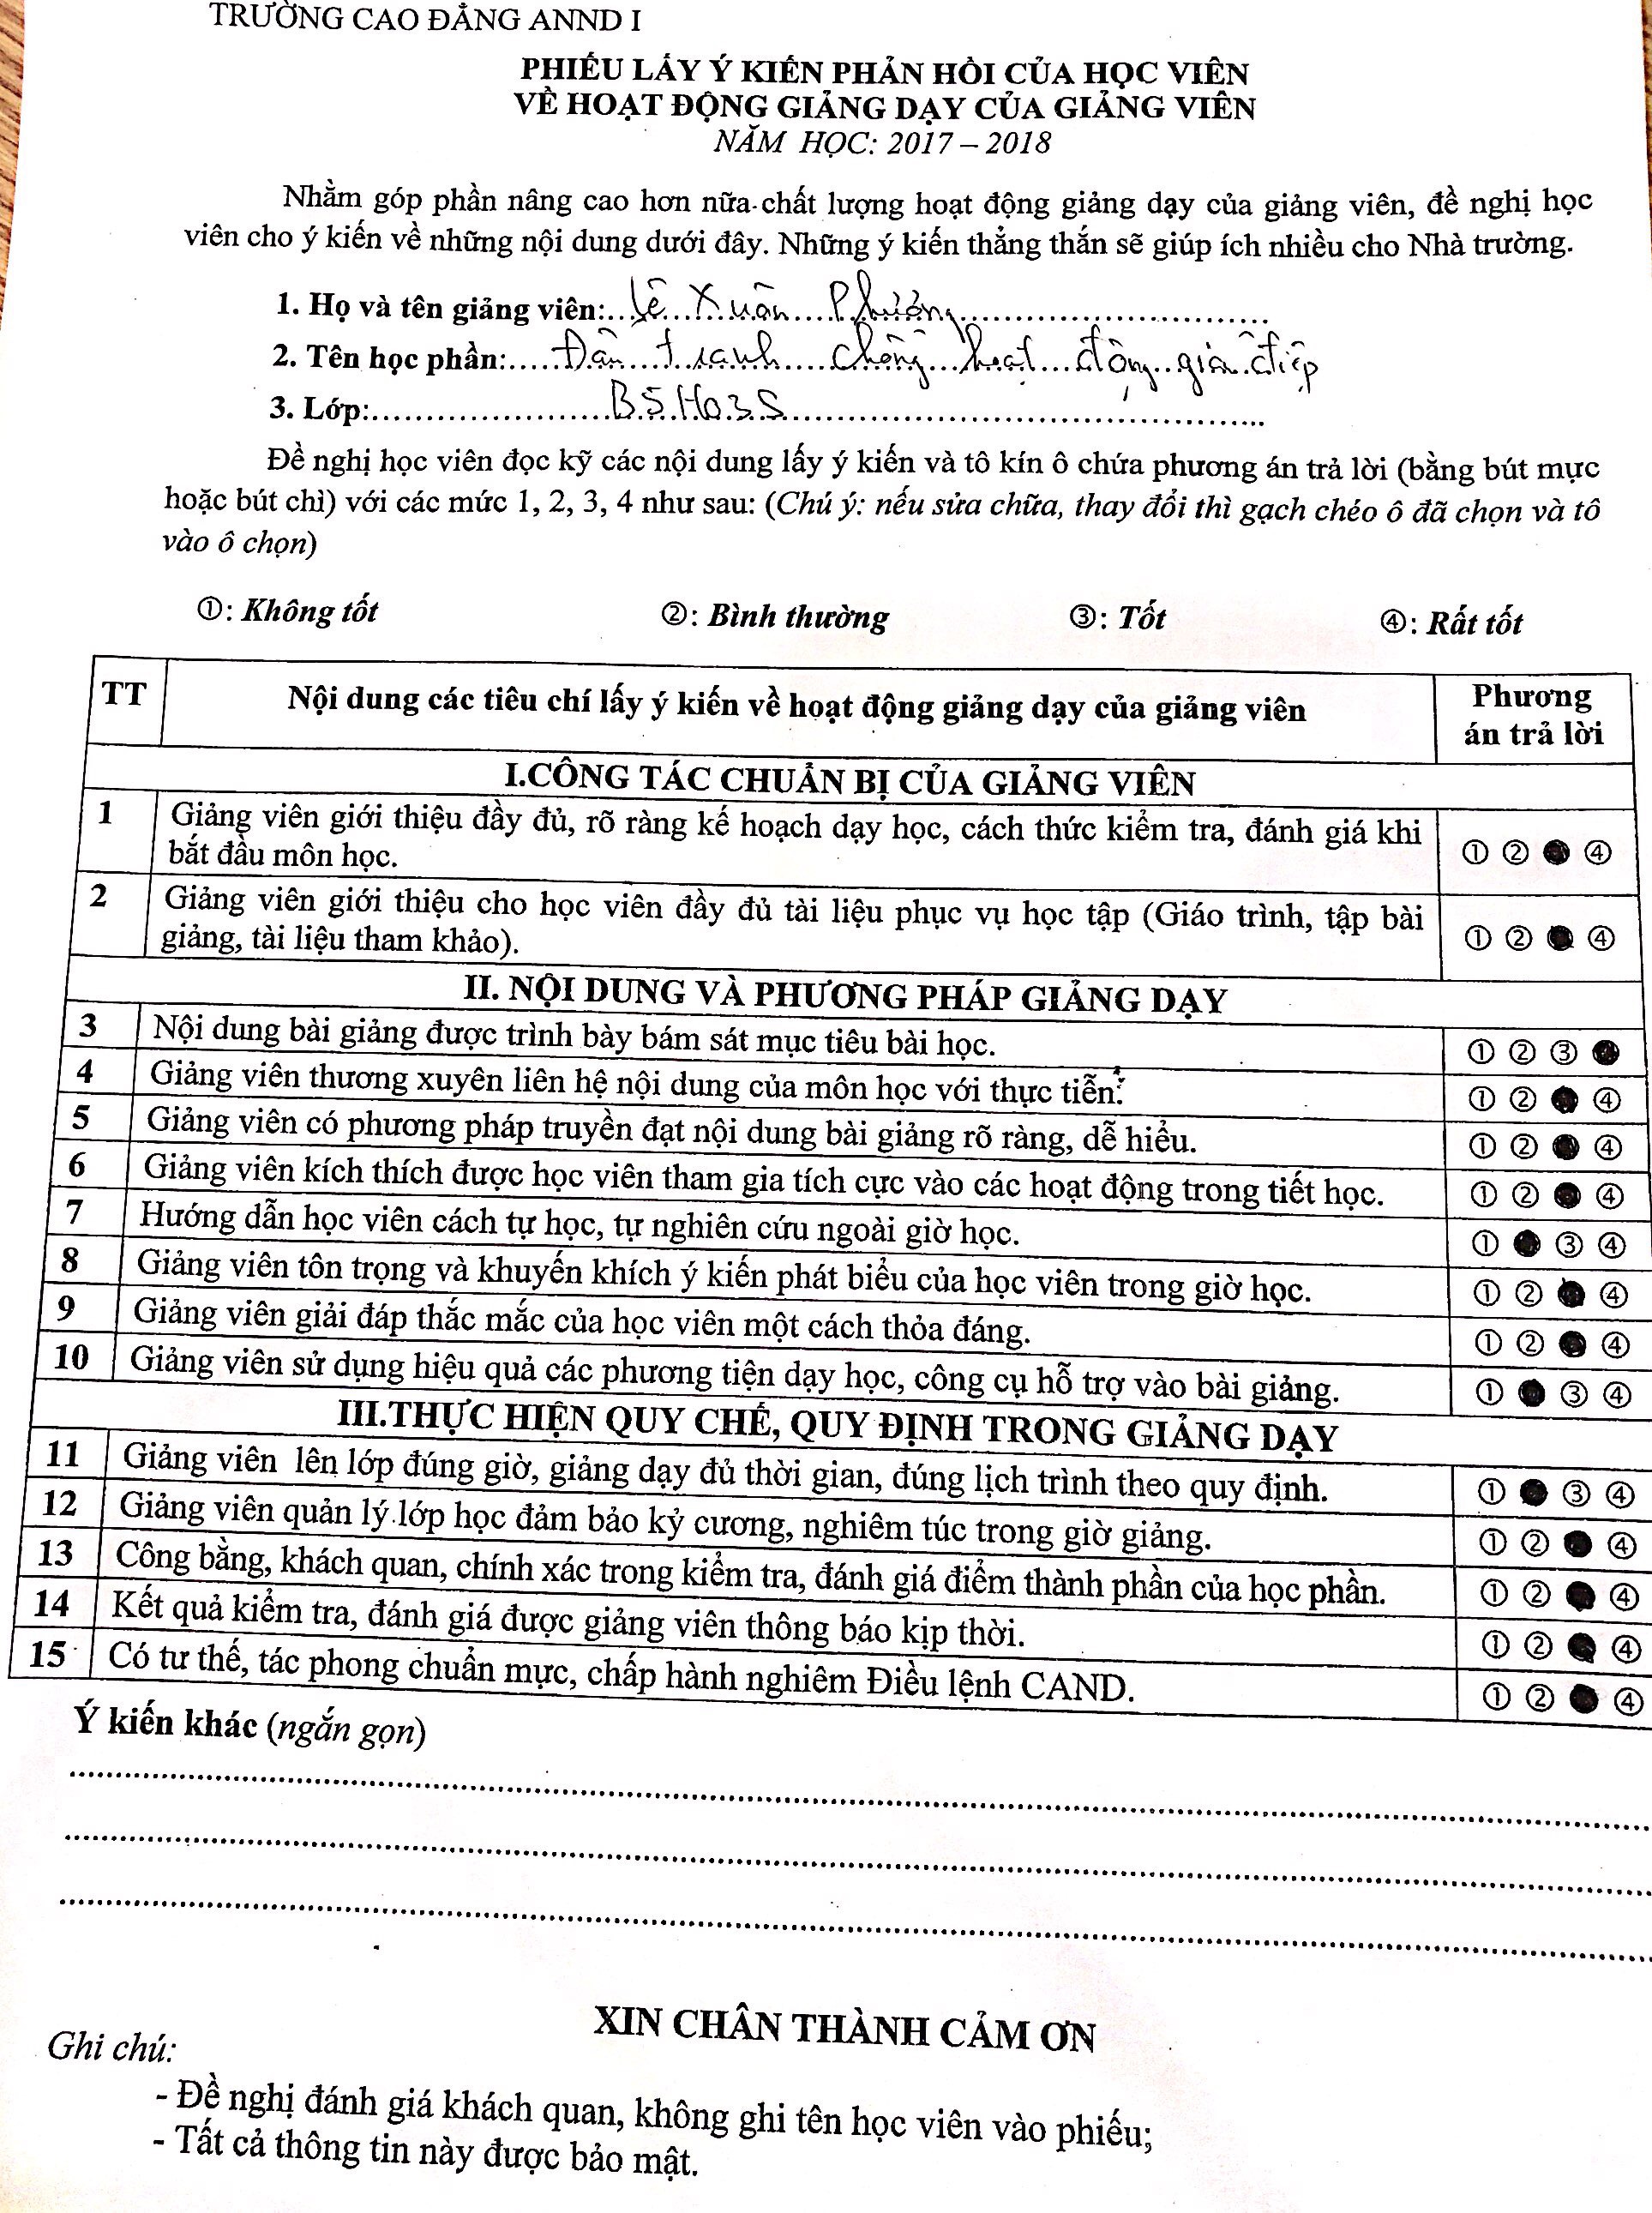 TRƯỜNG CAO ĐẲNG ANND I
PHIẾU LẤY Ý KIẾN PHẢN HỒI CỦA HỌC VIÊN
VỀ HOẠT ĐỘNG GIẢNG DẠY CỦA GIẢNG VIÊN
NĂM HỌC: 2017 – 2018
Nhằm góp phần nâng cao hơn nữa chất lượng hoạt động giảng dạy của giảng viên, đề nghị học
viên cho ý kiến về những nội dung dưới đây. Những ý kiến thẳng thắn sẽ giúp ích nhiều cho Nhà trường.
1. Họ và tên giảng viên: Lê Xuân Phương
2. Tên học phần: Đấu tranh chống hoạt động gián điệp
3. Lớp: B5H03S
Đề nghị học viên đọc kỹ các nội dung lấy ý kiến và tô kín ô chứa phương án trả lời (bằng bút mực
hoặc bút chì) với các mức 1, 2, 3, 4 như sau: (Chú ý: nếu sửa chữa, thay đổi thì gạch chéo ô đã chọn và tô
vào ô chọn)
①: Không tốt ②: Bình thường ③: Tốt ④: Rất tốt
TT Nội dung các tiêu chí lấy ý kiến về hoạt động giảng dạy của giảng viên Phương
án trả lời
I.CÔNG TÁC CHUẨN BỊ CỦA GIẢNG VIÊN
1 Giảng viên giới thiệu đầy đủ, rõ ràng kế hoạch dạy học, cách thức kiểm tra, đánh giá khi
bắt đầu môn học. ① ② ● ④
2 Giảng viên giới thiệu cho học viên đầy đủ tài liệu phục vụ học tập (Giáo trình, tập bài
giảng, tài liệu tham khảo). ① ② ● ④
II. NỘI DUNG VÀ PHƯƠNG PHÁP GIẢNG DẠY
3 Nội dung bài giảng được trình bày bám sát mục tiêu bài học. ① ② ③ ●
4 Giảng viên thương xuyên liên hệ nội dung của môn học với thực tiễn. ① ② ● ④
5 Giảng viên có phương pháp truyền đạt nội dung bài giảng rõ ràng, dễ hiểu. ① ② ● ④
6 Giảng viên kích thích được học viên tham gia tích cực vào các hoạt động trong tiết học. ① ② ● ④
7 Hướng dẫn học viên cách tự học, tự nghiên cứu ngoài giờ học. ① ● ③ ④
8 Giảng viên tôn trọng và khuyến khích ý kiến phát biểu của học viên trong giờ học. ① ② ● ④
9 Giảng viên giải đáp thắc mắc của học viên một cách thỏa đáng. ① ② ● ④
10 Giảng viên sử dụng hiệu quả các phương tiện dạy học, công cụ hỗ trợ vào bài giảng. ① ● ③ ④
III.THỰC HIỆN QUY CHẾ, QUY ĐỊNH TRONG GIẢNG DẠY
11 Giảng viên lên lớp đúng giờ, giảng dạy đủ thời gian, đúng lịch trình theo quy định. ① ● ③ ④
12 Giảng viên quản lý lớp học đảm bảo kỷ cương, nghiêm túc trong giờ giảng. ① ② ● ④
13 Công bằng, khách quan, chính xác trong kiểm tra, đánh giá điểm thành phần của học phần. ① ② ● ④
14 Kết quả kiểm tra, đánh giá được giảng viên thông báo kịp thời. ① ② ● ④
15 Có tư thế, tác phong chuẩn mực, chấp hành nghiêm Điều lệnh CAND. ① ② ● ④
Ý kiến khác (ngắn gọn)
XIN CHÂN THÀNH CẢM ƠN
Ghi chú:
- Đề nghị đánh giá khách quan, không ghi tên học viên vào phiếu;
- Tất cả thông tin này được bảo mật.